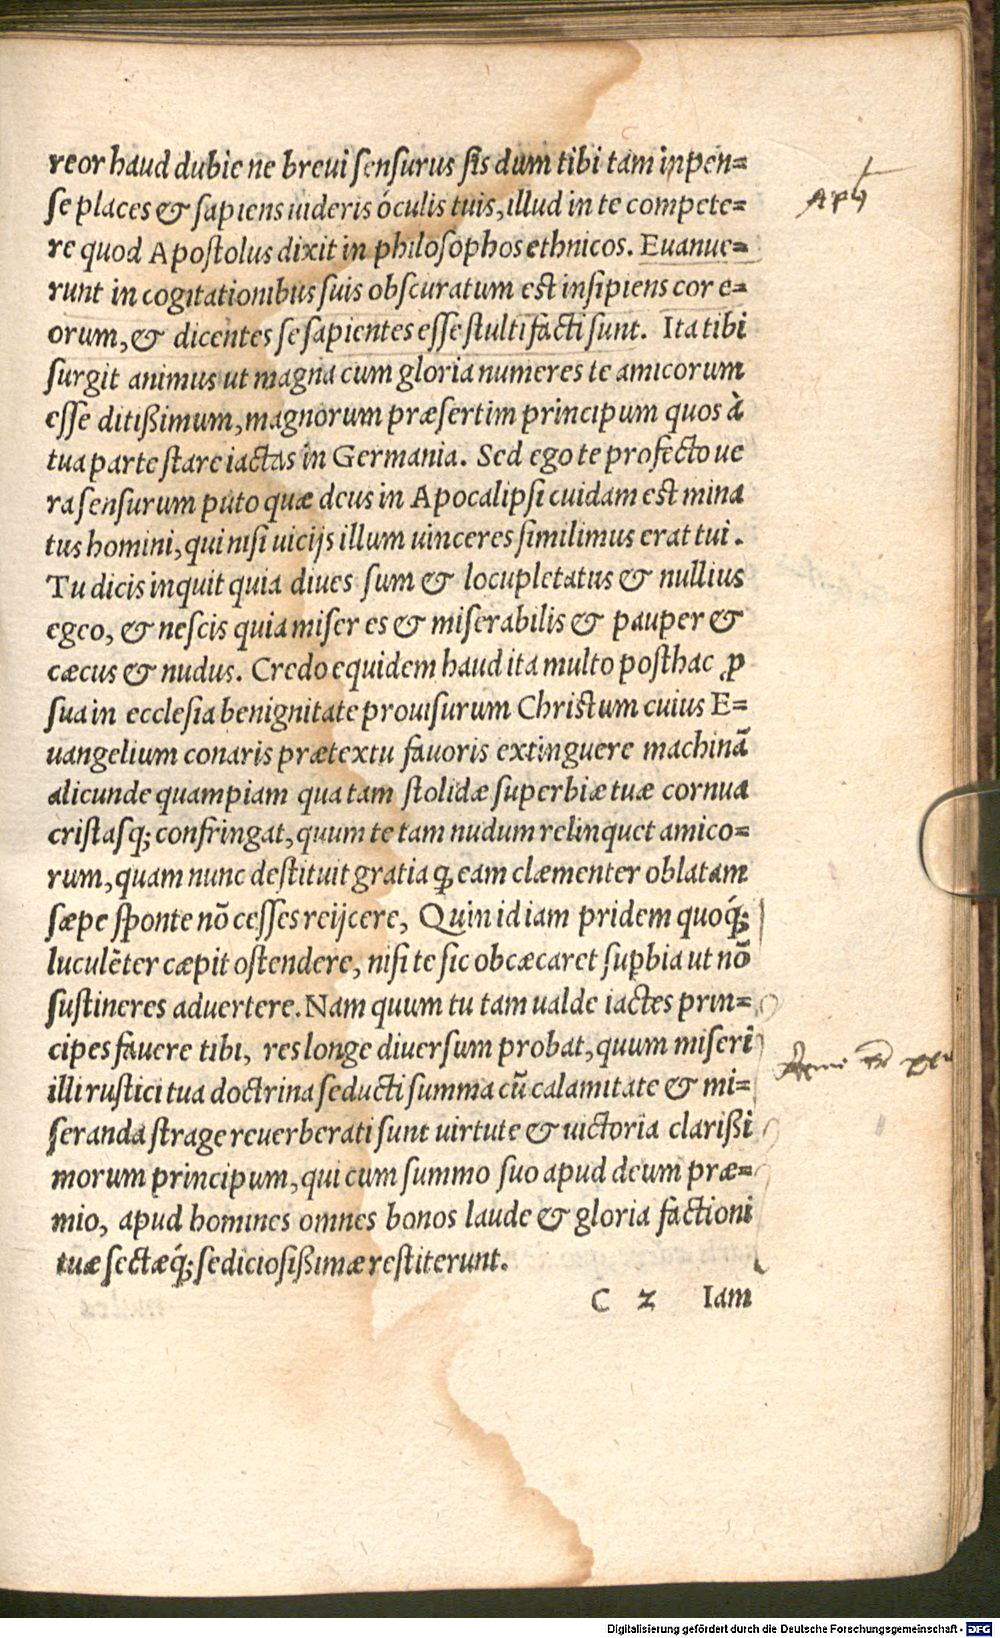 reor haud dubie ne brevi sensurus sis dum tibi tam inpen=
se places & sapiens uideris óculis tuis, illud in te compete=
re quod Apostolus dixit in philosophos ethnicos. Euanue=
runt in cogitationibus suis obscuratum est insipiens cor e=
orum, & dicentes se sapientes esse stulti facti sunt. Ita tibi
surgit animus ut magna cum gloria numeres te amicorum
esse ditißimum, magnorum præsertim principum quos à
tua parte stare iactas in Germania. Sed ego te profecto ue
ra sensurum puto quæ deus in Apocalipsi cuidam est mina
tus homini, qui nisi uicijs illum uinceres similimus erat tui.
Tu dicis inquit quia diues sum & locupletatus & nullius
egeo, & nescis quia miser es & miserabilis & pauper &
cæcus & nudus. Credo equidem haud ita multo posthac ꝓ
sua in ecclesia benignitate prouisurum Christum cuius E=
uangelium conaris prætextu fauoris extinguere machinā
alicunde quampiam qua tam stolidæ superbiæ tuæ cornua
cristasq; confringat, quum te tam nudum relinquet amico=
rum, quam nunc destituit gratia ꝙ eam clæmenter oblatam
sæpe sponte nō cesses reijcere, Quin id iam pridem quoq́;
luculēter cæpit ostendere, nisi te sic obcæcaret suꝑbia ut nō
sustineres aduertere. Nam quum tu tam ualde iactes prin=
cipes fauere tibi, res longe diuersum probat, quum miseri
illi rustici tua doctrina seducti summa cū calamitate & mi=
seranda strage reuerberati sunt uirtute & uictoria clarißi
morum principum, qui cum summo suo apud deum præ=
mio, apud homines omnes bonos laude & gloria factioni
tuæ sectæq́; sediciosißimæ restiterunt.
C 2 Iam
Digitalisierung gefördert durch die Deutsche Forschungsgemeinschaft - DFG